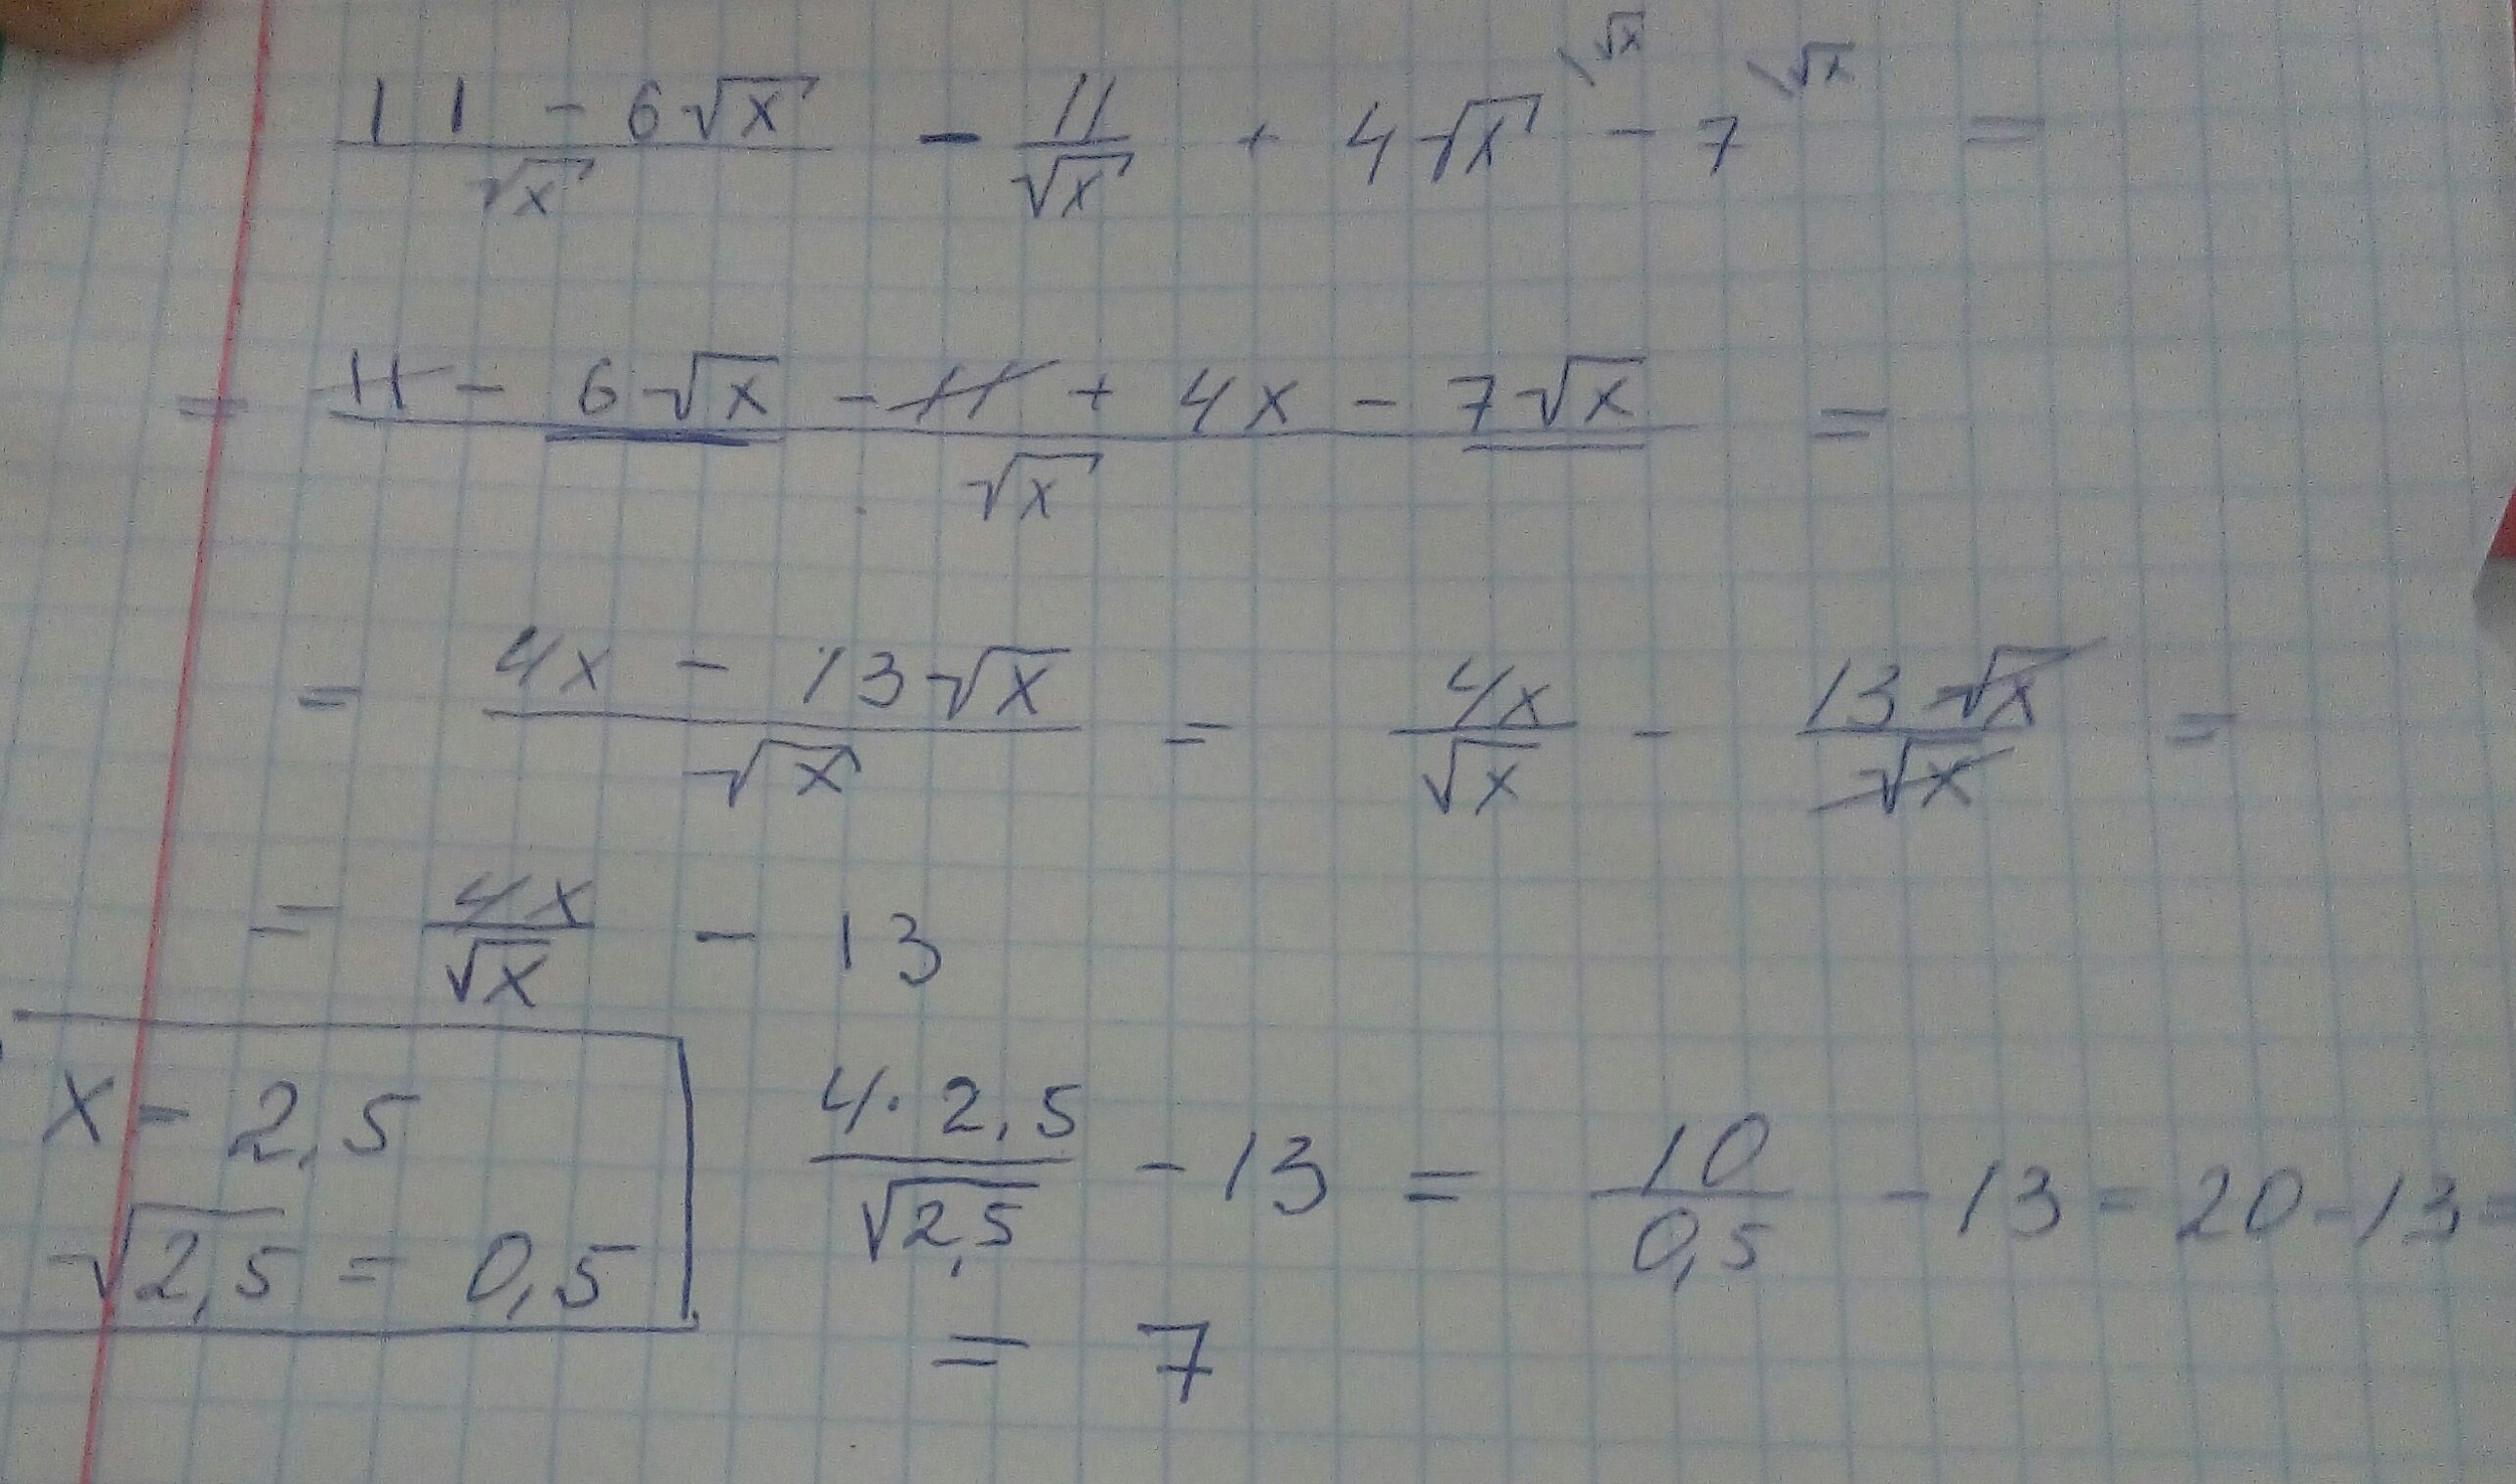 (11 - 6√x)/√x - 11/√x + 4√x \√x - 7 \√x =
= (11 - 6√x - 11 + 4x - 7√x)/√x =
= (4x - 13√x)/√x = 4x/√x - 13√x/√x =
= 4x/√x - 13
x = 2,5
√2,5 = 0,5
4·2,5/√2,5 - 13 = 10/0,5 - 13 = 20 - 13 =
= 7